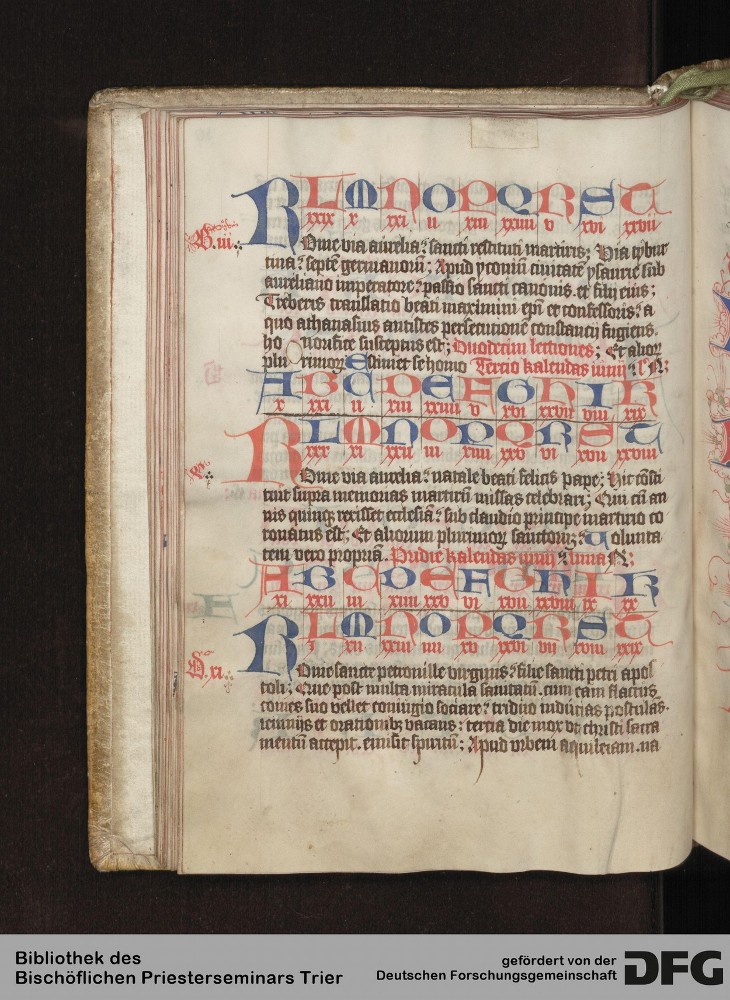 L M N O P Q R S T
xxix x xxi ii xiii xxiiii v xvi xxvii
B.iii.
Rome via aurelia: sancti restituti martiris; Via tybur
tina: septē germanorū; Apud yconiū ciuitatē ysaurie sub
aureliano imperatore: passio sancti cononis. et filij eius;
Treberis translatio beati maximini ep̄i et confessoris: a
quo athanasius antistes persecutionē constancij fugiens.
ho norifice susceptus est; Duodecim lectiones; Et alioꝝ
plu rimoꝝ Estimet se homo Tercio kalendas iunij
A B C D E F G H I K
x xxi ii xiii xxiiii v xvi xxvii viii xix
L M N O P Q R S T
xxx xi xxii iii xiiii xxv vi xvii xxviii
Rome via aurelia: natale beati felicis pape; Hic cōsti
tuit supra memorias martirū missas celebrari; Qui cū an
nis quinqꝫ rexisset ecclesiā: sub claudio principe martirio co
ronatus est; Et aliorum plurimoꝝ sanctorū; Volunta
tem vero propriā. Pridie kalendas iunij luna
A B C D E F G H I K
xi xxii iii xiiii xxv vi xvii xxviii ix xx
L M N O P Q R S T
xii xxiii iiii xv xxvi vii xviii xxix
D.xi.
Rome sancte petronille virginis: filie sancti petri apos
toli; Que post multa miracula sanitatū. cum eam flaccus
comes suo vellet coniugio sociare: triduo inducias postulās.
ieiunijs et orationibꝫ vacans: tercia die mox vt christi sacra
mentū accepit. emisit spiritū; Apud vrbem aquileiam. na
Bibliothek des
Bischöflichen Priesterseminars Trier
gefördert von der
Deutschen Forschungsgemeinschaft
DFG